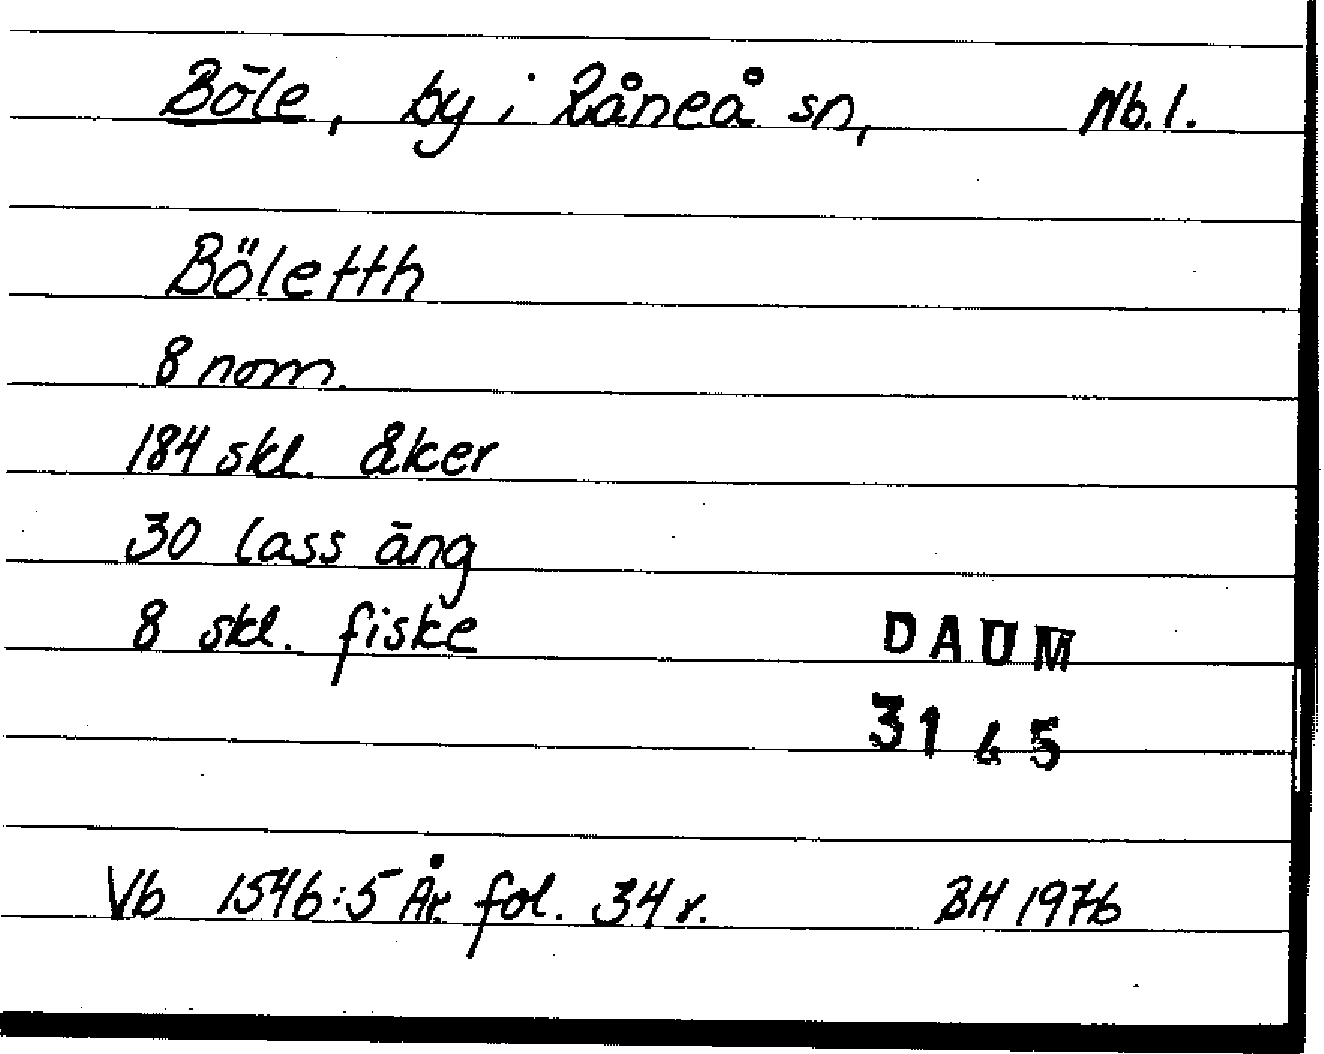 Böle, by i Råneå sn, Nb. l.
Böletth
8 nom.
184 skl. åker
30 lass äng
8 skl. fiske
DAUM
3145
Vb 1546:5 Åk fol. 34 r. BH 1976